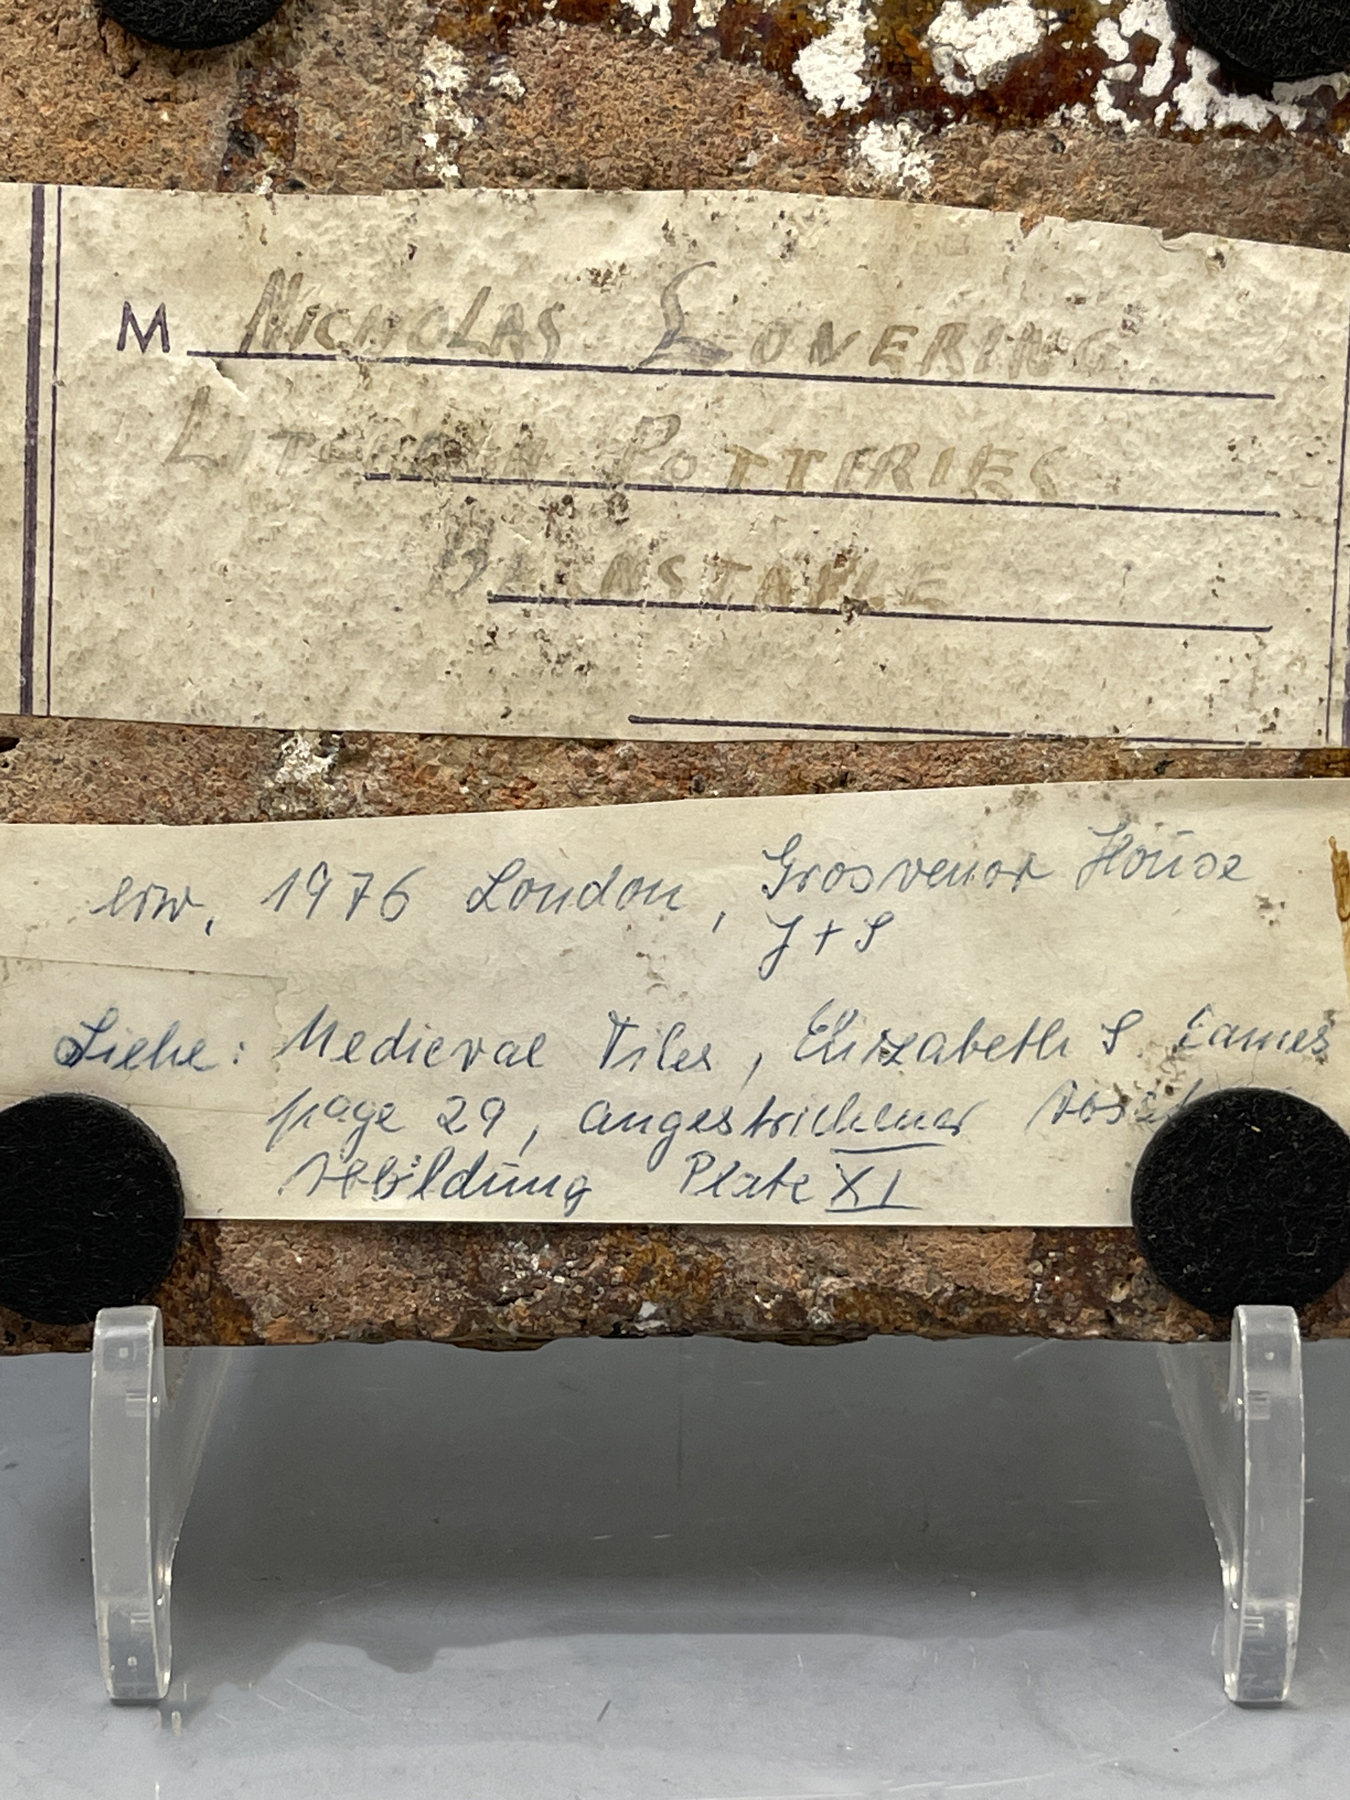 M NICHOLAS LOVERING
POTTERIES
erw, 1976 London, Grosvenor House
J + S
Siehe: Medieval Tiles, Elizabeth S Eames
page 29, angestrichener
Abbildung Plate XI